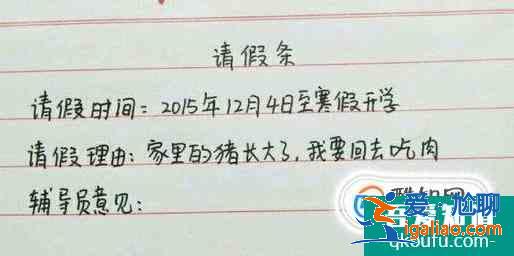 请假条
请假时间：2015年12月4日至寒假开学
请假理由：家里的猪长大了，我要回去吃肉
辅导员意见：
爱尬聊
igaliao.com
qkoufu.com